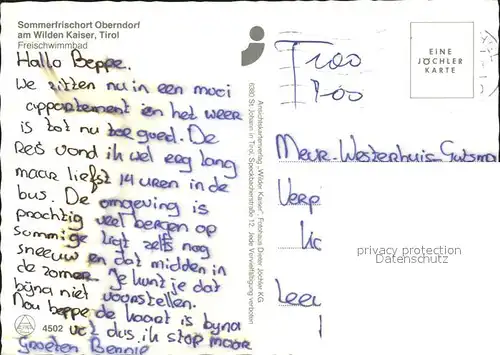 Sommerfrischort Oberndorf
am Wilden Kaiser, Tirol
Freischwimmbad
Hallo Beppe.
We zitten nu in een mooi
appartement en het weer
is tot nu toe goed. De
Reis vond ik wel erg lang
maar liefst 14 uren in de
bus. De omgeving is
prachtig veel bergen op
sommige ligt zelfs nog
sneeuw en dat midden in
de zomer. Je kunt je dat
bijna niet voorstellen.
Nou beppe de kaart is bijna
vol dus ik stop maar
Groeten Bennie
4502
Ansichtskartenverlag „Wilder Kaiser", Fotohaus Dieter Jöchler KG
6380 St. Johann in Tirol, Speckbacherstraße 12. Jede Vervielfältigung verboten
EINE
JÖCHLER
KARTE
Mevr. Westerhuis
Verp
Lee
privacy protection
Datenschutz